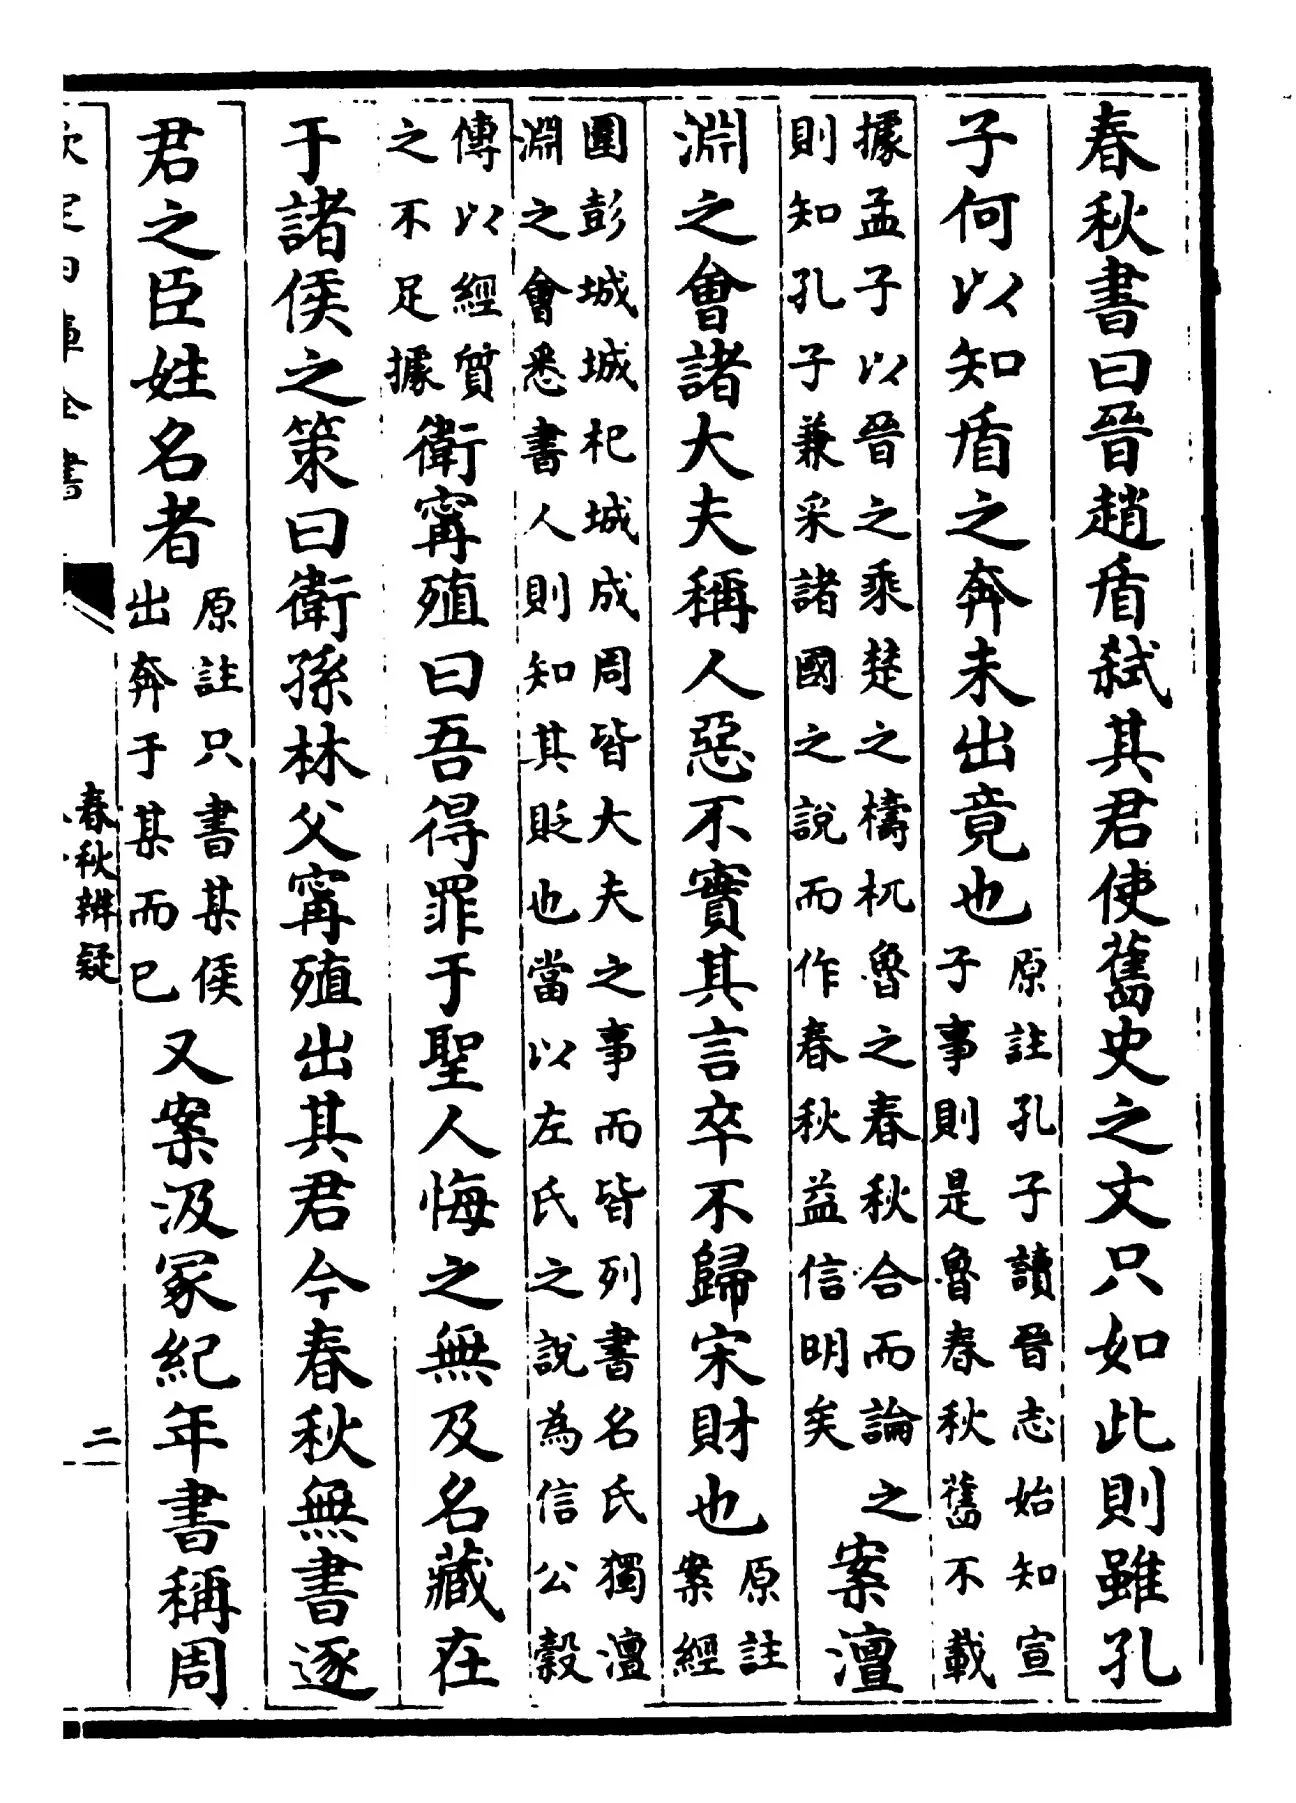 春秋書曰晉趙盾弑其君使舊史之文只如此則雖孔
子何以知盾之奔未出竟也原註孔子讀晉志始知宣
子事則是魯春秋舊不載
據孟子以晉之乘楚之檮杌魯之春秋合而論之
則知孔子兼采諸國之說而作春秋益信明矣
案澶
淵之會諸大夫稱人惡不實其言卒不歸宋財也原註
案經
圍彭城城杞城成周皆大夫之事而皆列書名氏獨澶
淵之會悉書人則知其貶也當以左氏之說為信公穀
傳以經質
之不足據
衛甯殖曰吾得罪于聖人悔之無及名藏在
于諸侯之策曰衛孫林父甯殖出其君今春秋無書逐
君之臣姓名者原註只書某侯
出奔于某而已
又案汲冢紀年書稱周
春秋辨疑
二